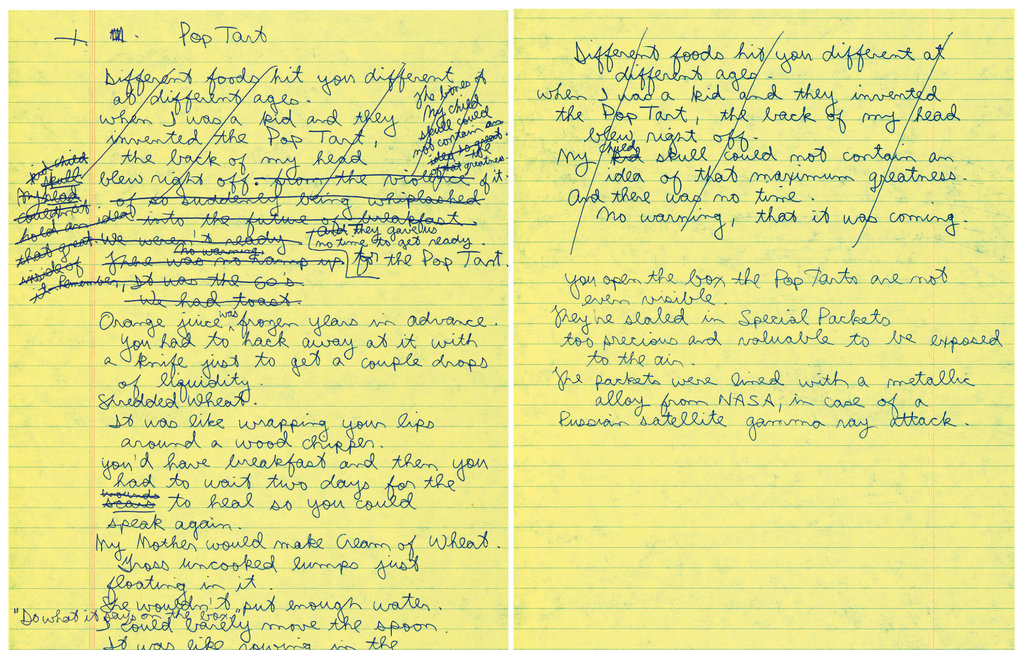 Pop Tart
Different foods hit you different
at different ages.
when I was a kid and they
invented the Pop Tart,
the back of my head
blew right off. from the violence of it.
of so suddenly being whiplashed
into the future of breakfast
We weren't ready
And they gave us
no time to get ready
There was no ramp up. for the Pop Tart.
no warning.
It was the 60's
We had toast.
The bones of
My child
skull could
not contain an
idea so great
the
of that greatness.
child
skull
My head
could not
hold an idea
that great
inside of
it
Remember,
Orange juice was frozen years in advance.
you had to hack away at it with
a knife just to get a couple drops
of liquidity.
Shredded Wheat.
It was like wrapping your lips
around a wood chipper.
you'd have breakfast and then you
had to wait two days for the
wounds
scars to heal so you could
speak again.
My Mother would make Cream of Wheat.
Gross uncooked lumps just
floating in it.
She wouldn't put enough water.
"Do what it says on the box."
I could barely move the spoon.
It was like rowing in the
Different foods hit you different at
different ages.
when I was a kid and they invented
the Pop Tart, the back of my head
blew right off.
My child kid skull could not contain an
idea of that maximum greatness.
And there was no time.
No warning, that it was coming.
you open the box the Pop Tarts are not
even visible.
They're sealed in Special Packets
too precious and valuable to be exposed
to the air.
The packets were lined with a metallic
alloy from NASA, in case of a
Russian satellite gamma ray attack.